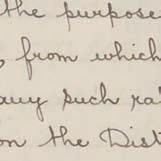 the purpose
, from which
any such ra
on the Dist